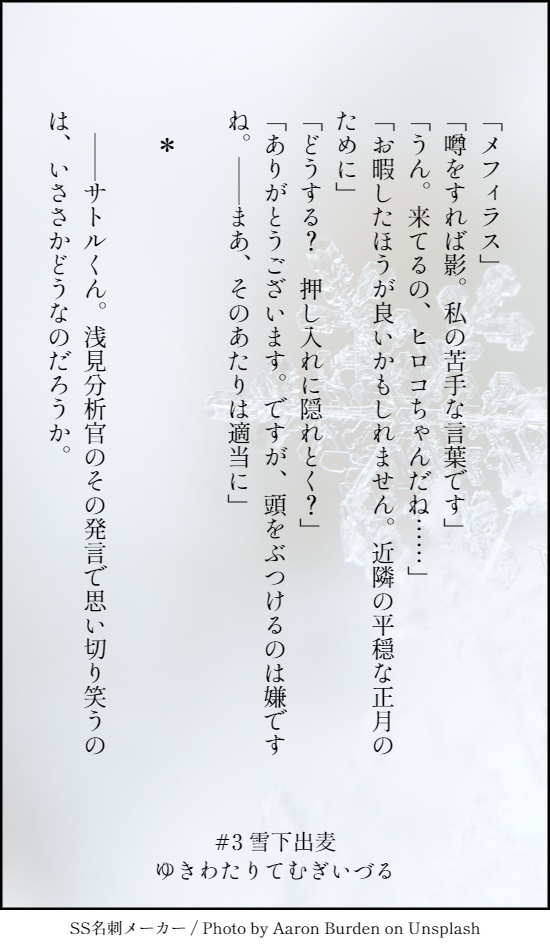 「メフィラス」
「噂をすれば影。私の苦手な言葉です」
「うん。来てるの、ヒロコちゃんだね……」
「お暇したほうが良いかもしれません。近隣の平穏な正月の
ために」
「どうする？　押し入れに隠れとく？」
「ありがとうございます。ですが、頭をぶつけるのは嫌です
ね。――まあ、そのあたりは適当に」
＊
――サトルくん。浅見分析官のその発言で思い切り笑うの
は、いささかどうなのだろうか。
#3 雪下出麦
ゆきわたりてむぎいづる
SS名刺メーカー / Photo by Aaron Burden on Unsplash